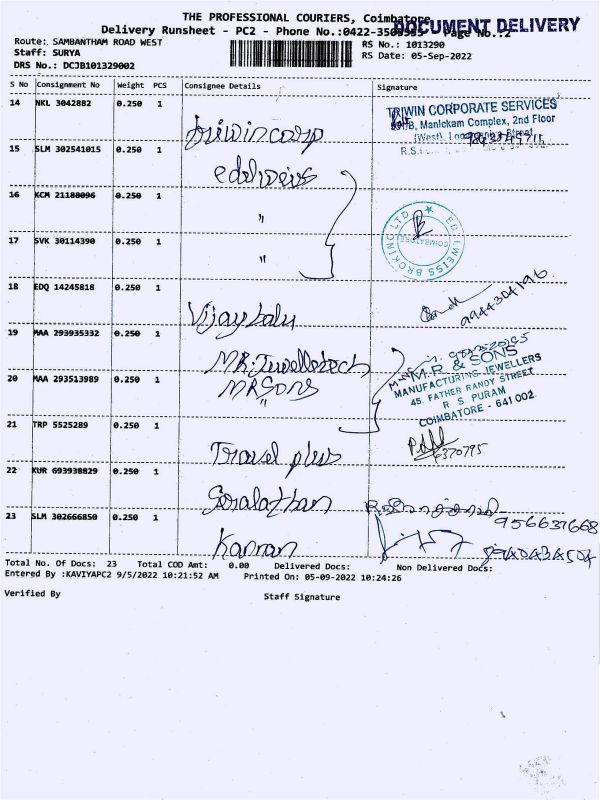 THE PROFESSIONAL COURIERS, Coimbatore
DOCUMENT DELIVERY
Delivery Runsheet - PC2 - Phone No.:0422-3505555 Page No.:2
Route: SAMBANTHAM ROAD WEST
RS No.: 1013290
Staff: SURYA
RS Date: 05-Sep-2022
DRS No.: DCJB101329002
S No Consignment No Weight PCS Consignee Details Signature
14 NKL 3042882 0.250 1
TRIWIN CORPORATE SERVICES
Manickam Complex, 2nd Floor
Triwin corp
15 SLM 302541015 0.250 1
R.S.
edelweiss
16 KCM 21188096 0.250 1
"
EDELWEISS BROKING LTD
COIMBATORE
17 SVK 30114390 0.250 1
"
18 EDQ 14245818 0.250 1
9944304196
Vijay balu
19 MAA 293935332 0.250 1
MR. Jwellotech
M/s M.R & SONS
MANUFACTURING JEWELLERS
45, FATHER RANDY STREET
R S PURAM
COIMBATORE - 641 002
20 MAA 293513989 0.250 1
MR Sons
"
21 TRP 5525289 0.250 1
6370795
Travel plus
22 KUR 693938829 0.250 1
23 SLM 302666850 0.250 1
956637668
Kannan
Total No. Of Docs: 23 Total COD Amt: 0.00 Delivered Docs: Non Delivered Docs:
Entered By :KAVIYAPC2 9/5/2022 10:21:52 AM Printed On: 05-09-2022 10:24:26
Verified By Staff Signature